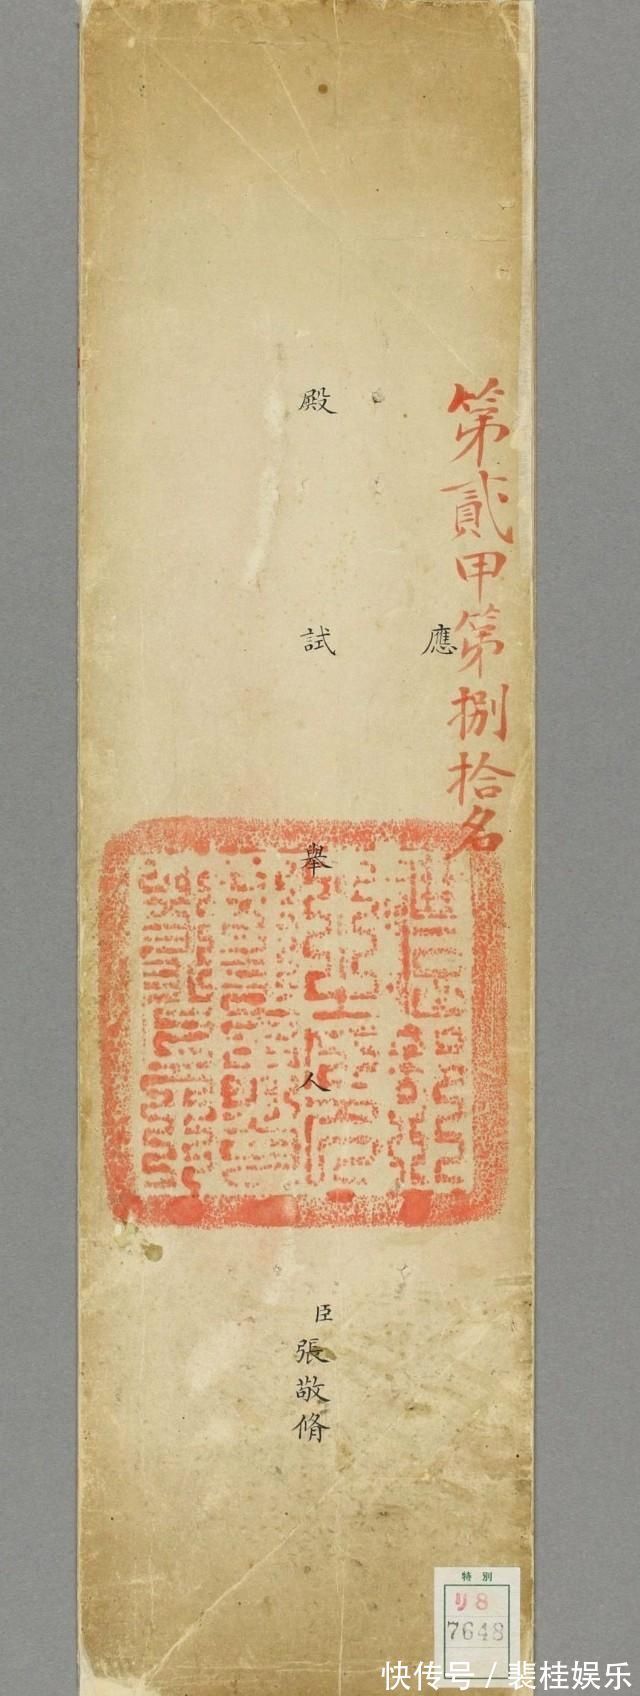 第貳甲第捌拾名
應
殿試舉人臣張敬脩
特別
リ8
7648
快传号/裴桂娱乐